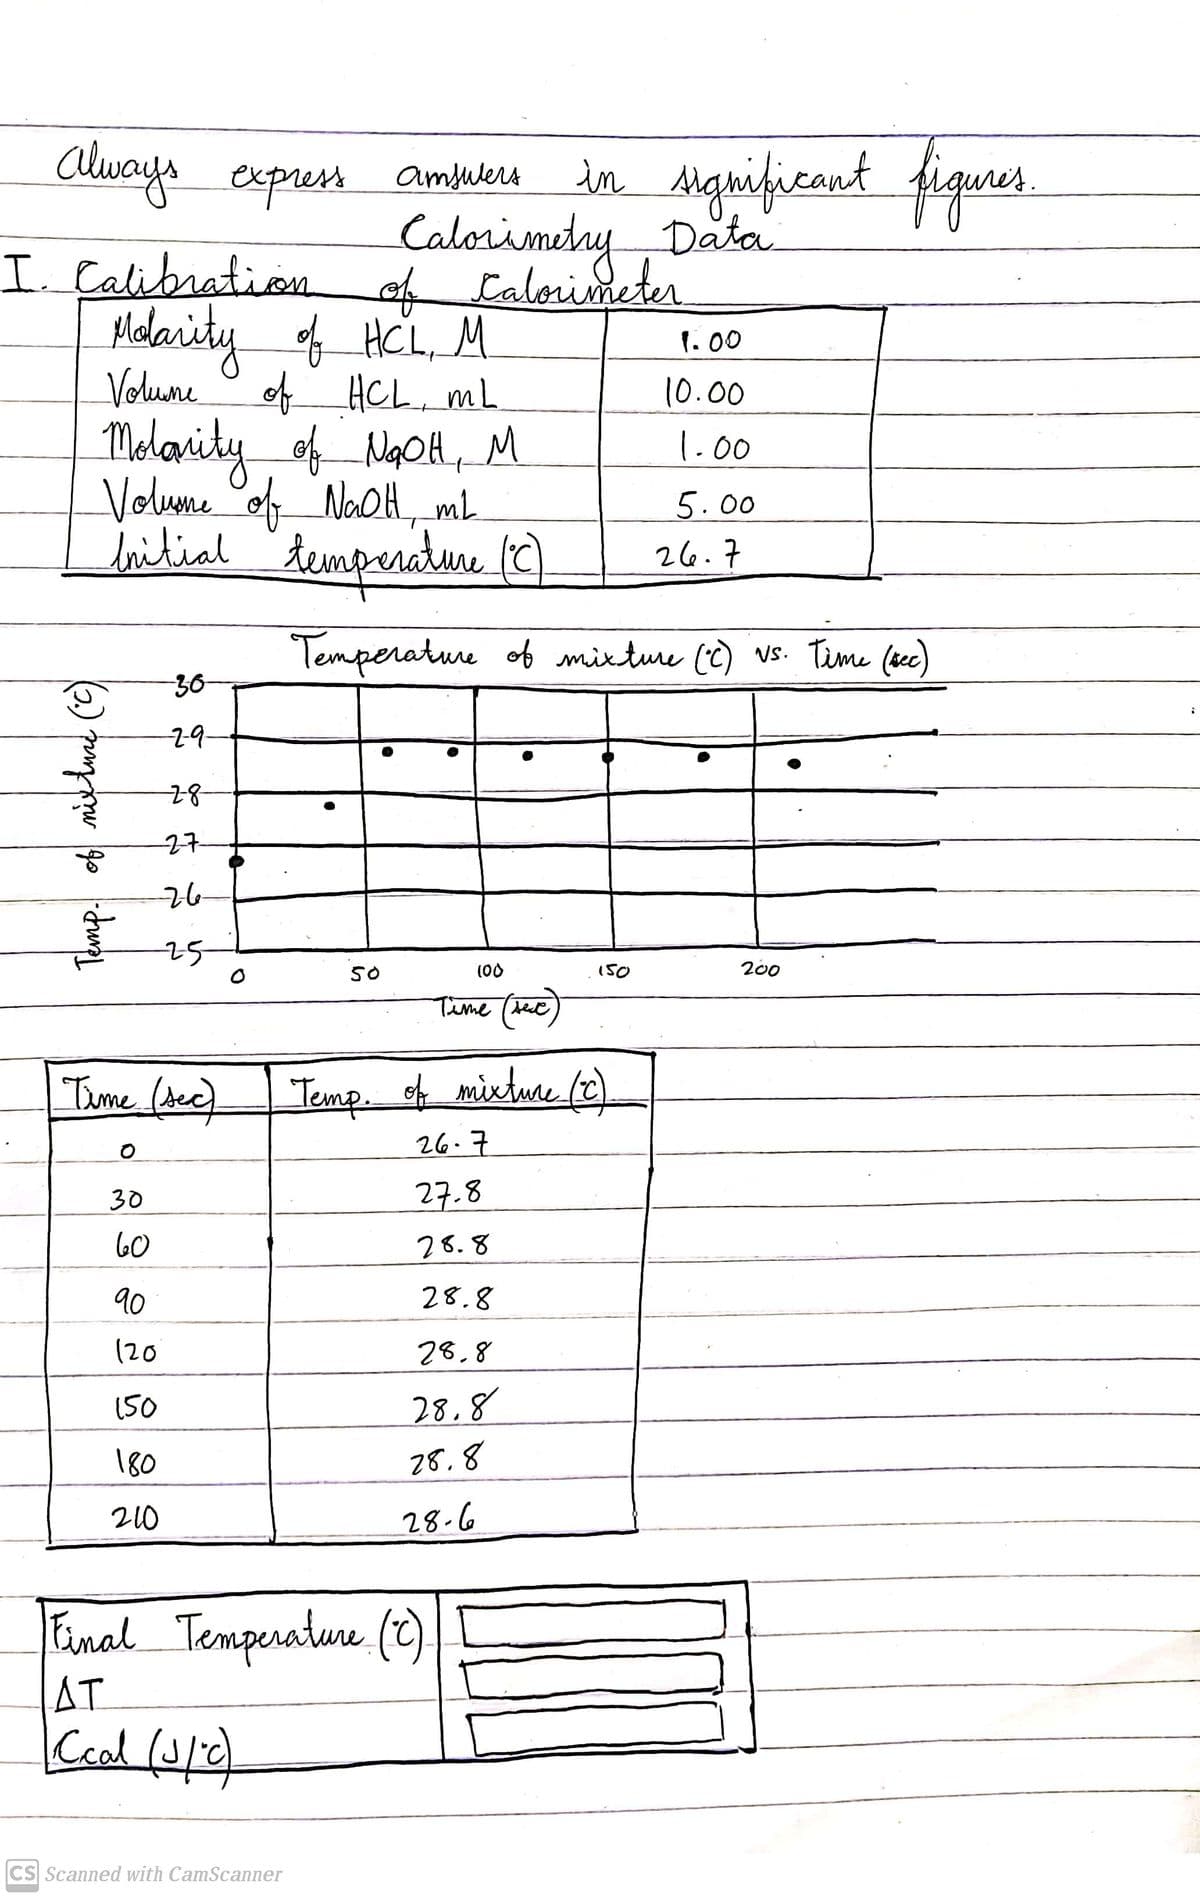 Always express amswers in significant figures.
Calorimetry Data
I. Calibration of Calorimeter
Molarity of HCL, M 1.00
Volume of HCL, mL 10.00
Molarity of NaOH, M 1.00
Volume of NaOH, mL 5.00
Initial temperature (°C) 26.7
Temperature of mixture (°C) vs. Time (sec)
Temp. of mixture (°C)
30
29
28
27
26
25
0 50 100 150 200
Time (sec)
Time (sec) Temp. of mixture (°C)
0 26.7
30 27.8
60 28.8
90 28.8
120 28.8
150 28.8
180 28.8
210 28.6
Final Temperature (°C)
ΔT
Ccal (J/°C)
CS Scanned with CamScanner